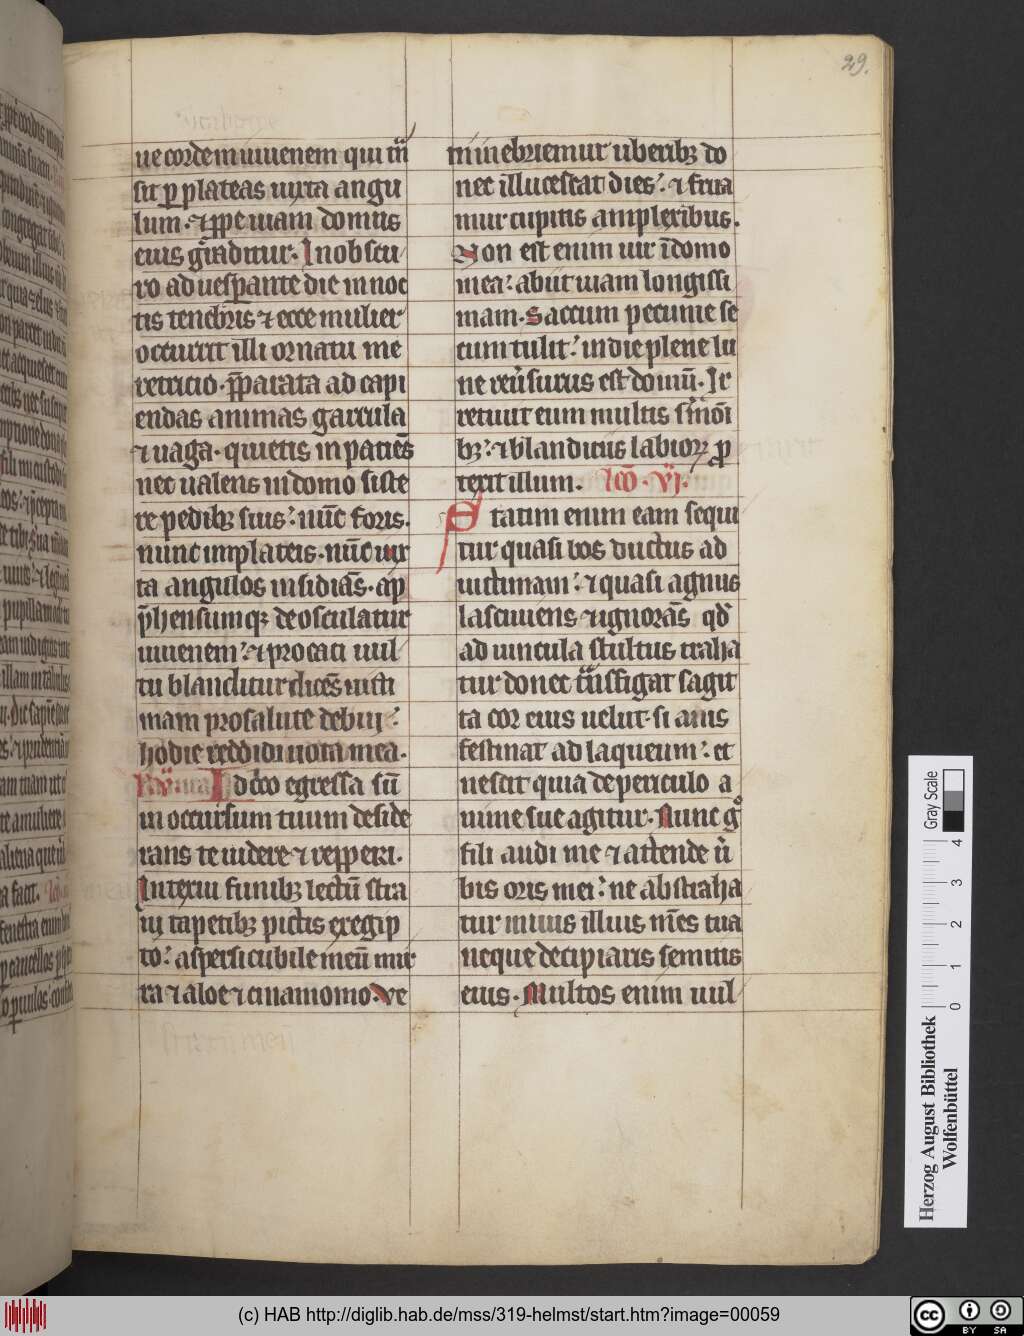 29.
ue cordem iuuenem qui tn̄
sit ꝑ plateas iuxta angu
lum· ⁊ ꝓpe uiam domus
eius gͥaditur· In obscu-
ro aduesperante die in noc
tis tenebris ⁊ ecce mulier
occurrit illi ornatu me
retricio· p̄parata ad capi
endas animas garrula
⁊ uaga· quietis inpaciēs
nec ualens in domo siste
re pedibꝫ suis: nūc foris.
nunc in plateis· nūc iux
ta angulos insidiās· ap
p̄hensumqꝫ deosculatur
iuuenem: ⁊ procaci uul
tu blanditur dicēs uicti
mam pro salute debui:
hodie reddidi uota mea.
Idcͦco egressa sū
in occursum tuum deside
rans te uidere ⁊ repperi.
Intexui funibꝫ lectū stra
ui tapetibꝫ pictis ex egip
to: aspersi cubile meū mir
ra ⁊ aloe ⁊ cinamomo· Ve
ni inebriemur uberibꝫ do
nec illucescat dies: ⁊ frua
mur cupitis amplexibus.
Non est enim uir ī domo
mea: abiit uiam longissi
mam· Saccum pecunie se
cum tulit: in die plene lu
ne reu̓surus est domū· Ir
retiuit eum multis s̓moī
bꝫ: ⁊ blandiciis labioꝝ ꝓ
texit illum. Lc̄o· vi·
Statim enim eam sequi
tur quasi bos ductus ad
uictimam: ⁊ quasi agnus
lasciuiens ⁊ ignorās qd̓
ad uincula stultus traha
tur donec tͣnsfigat sagit
ta cor eius uelut si auis
festinat ad laqueum: et
nescit quia de periculo a
nime sue agitur· Nunc gͦ
fili audi me ⁊ attende u̓
bis oris mei: ne abstraha
tur in uiis illius mēs tua
neque decipiaris semitis
eius· Multos enim uul
Gray Scale
0 1 2 3 4
Herzog August Bibliothek
Wolfenbüttel
(c) HAB http://diglib.hab.de/mss/319-helmst/start.htm?image=00059
cc BY SA